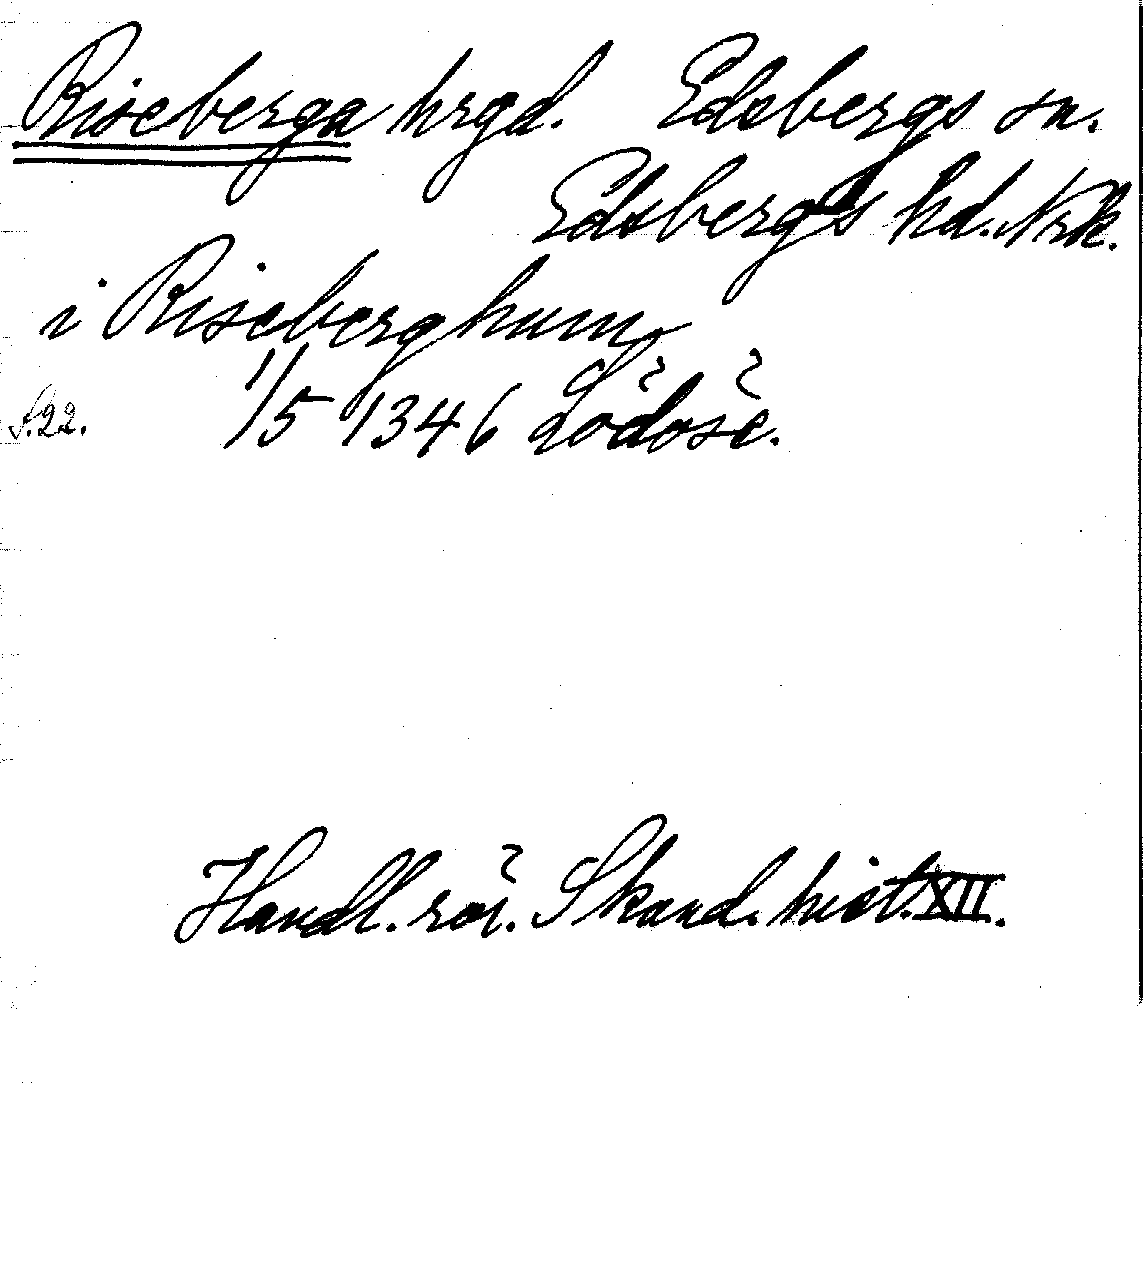 Riseberga hrgd. Edsbergs sn.
Edsbergs hd. Nrk.
i Riseberghum
S.22. 1/5 1346 Lödöse.
Handl. rör. Skand. hist. XII.